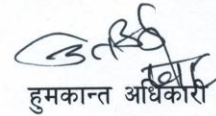 हुमकान्त अधिकारी